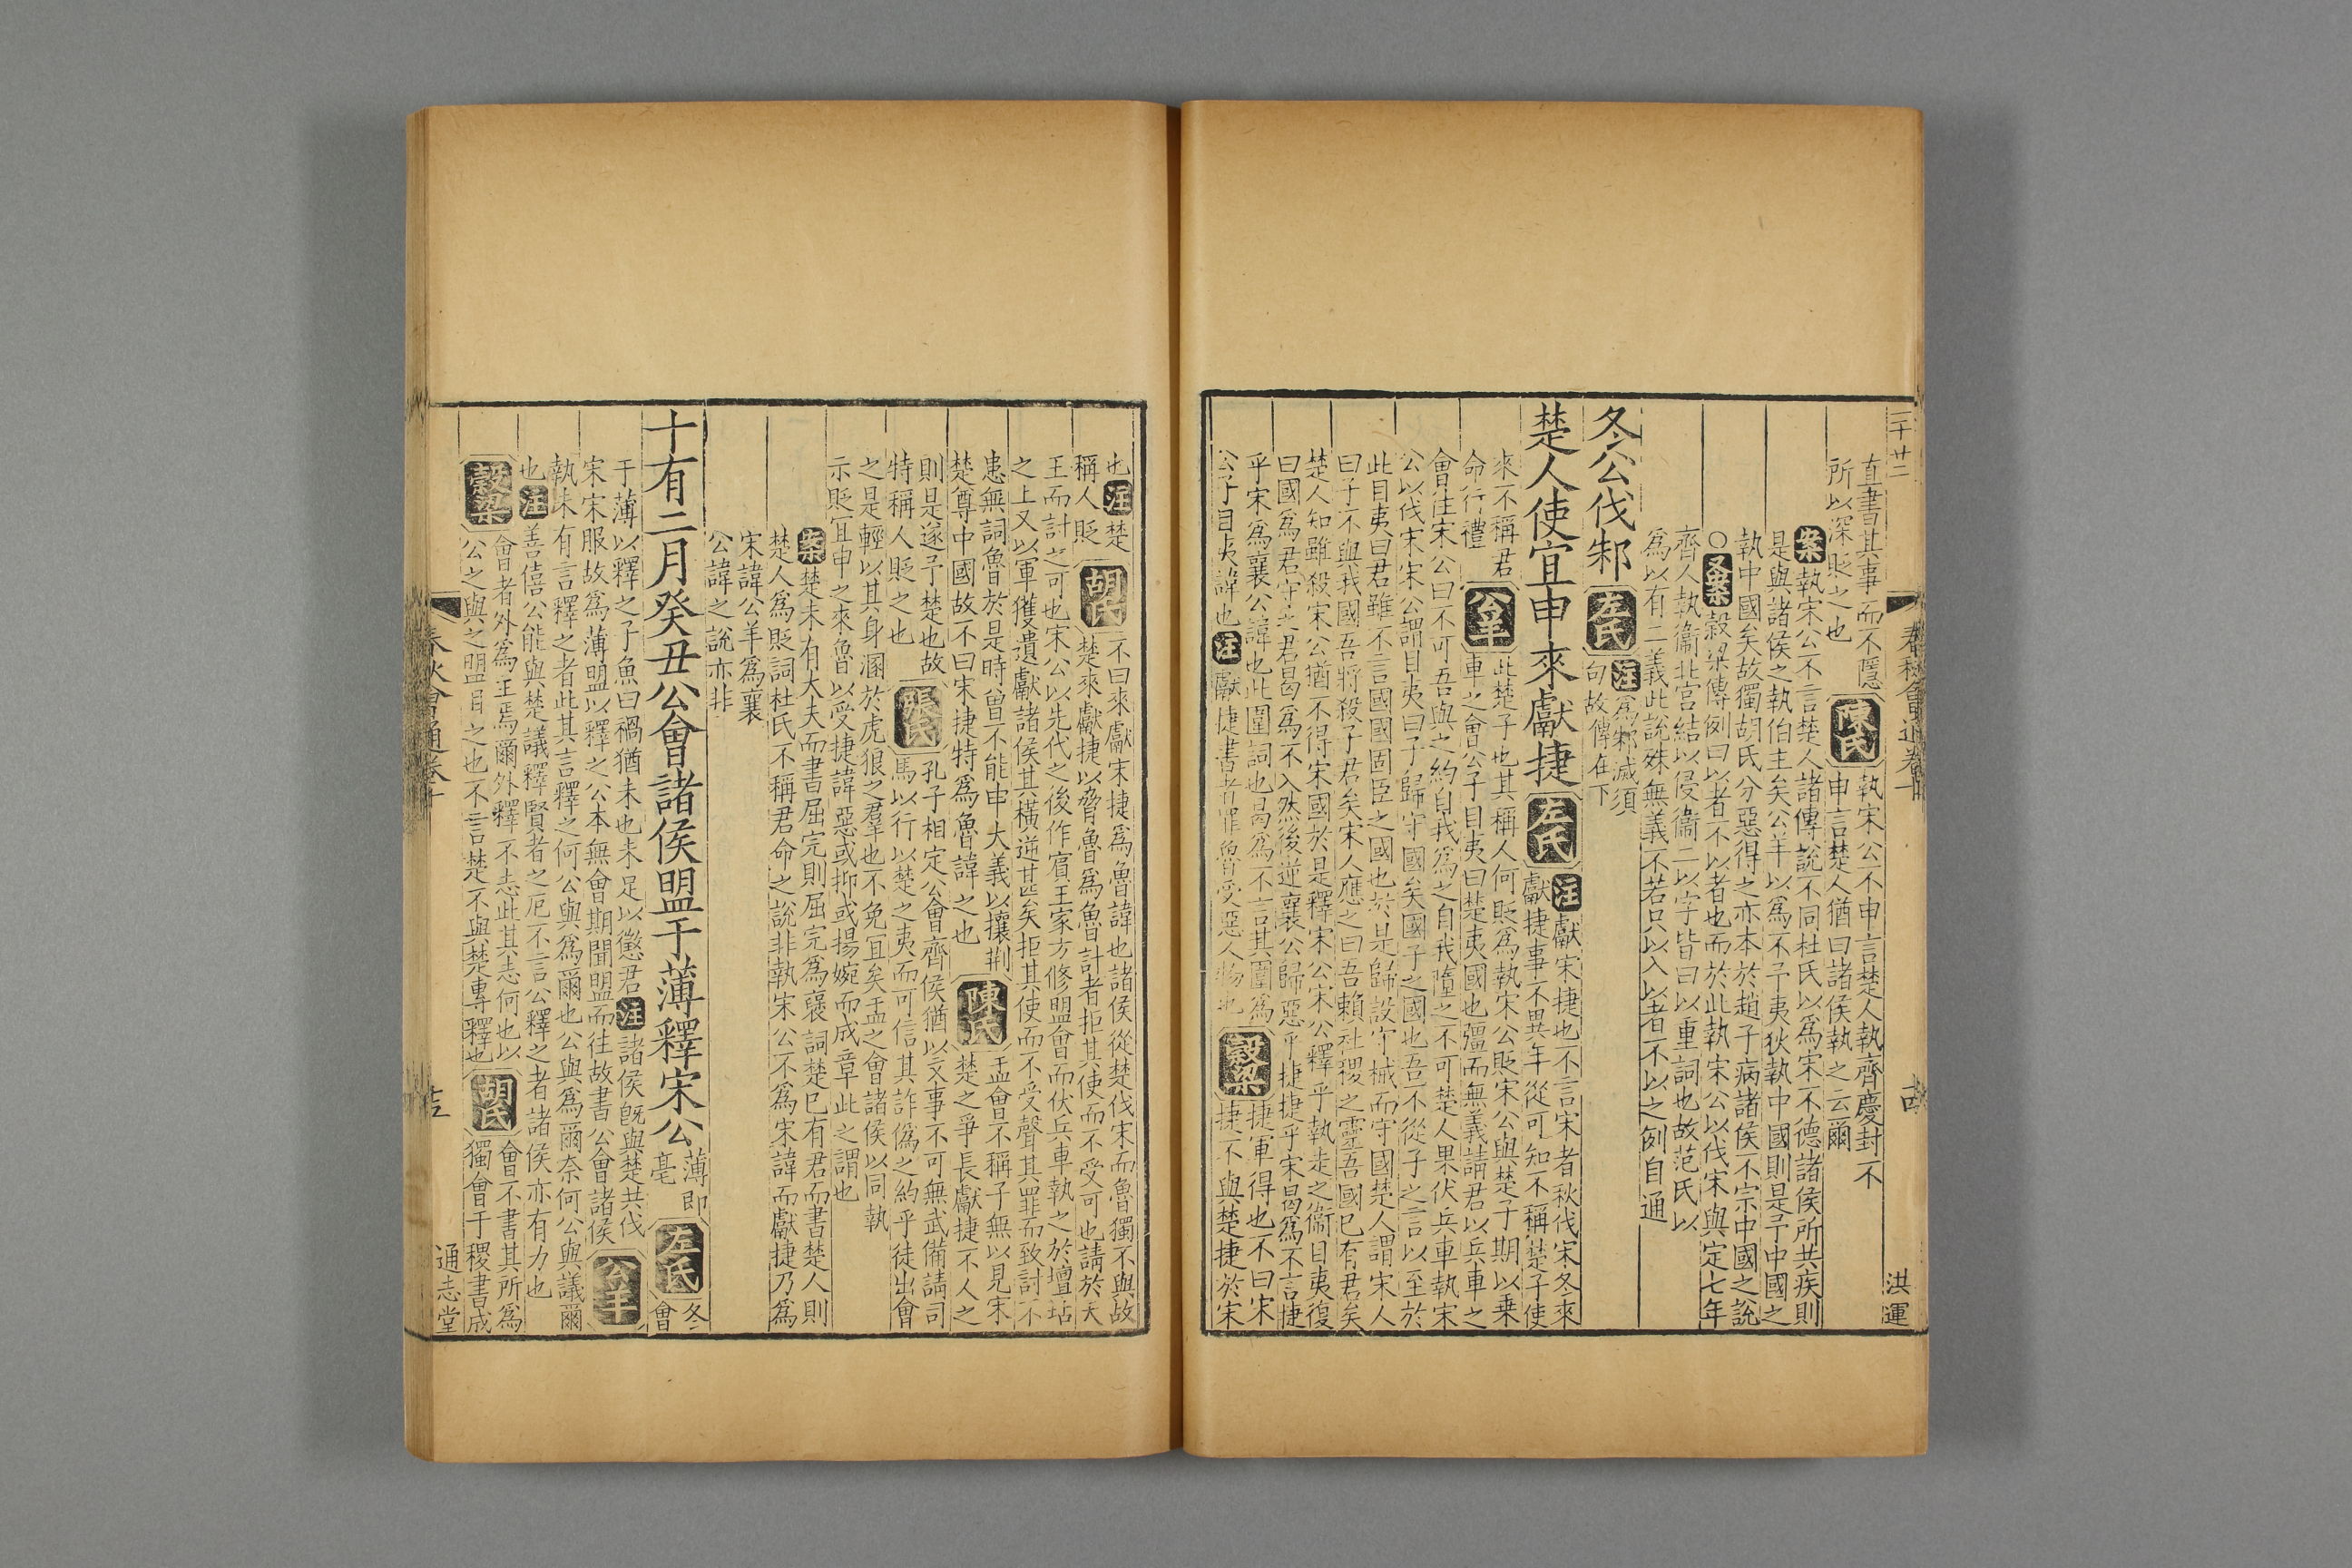 春秋會通卷十
洪運
直書其事而不隱
所以深貶之也
陳氏
執宋公不申言楚人執齊慶封不
申言楚人猶曰諸侯執之云爾
案執宋公不言楚人諸傳說不同杜氏以為宋不德諸侯所共疾則
是與諸侯之執伯主矣公羊以為不予夷狄執中國則是予中國之
執中國矣故獨胡氏分惡得之亦本於趙子病諸侯不宗中國之說
○又案穀梁傳例曰以者不以者也而於此執宋公以伐宋與定七年
齊人執衞北宮結以侵衞二以字皆曰以重詞也故范氏以
為以有二義此說殊無義不若只以入以者不以之例自通
冬公伐邾
左氏
注為邾滅須
句故傳在下
楚人使宜申來獻捷
左氏
注獻宋捷也不言宋者秋伐宋冬來
獻捷事不異年從可知不稱楚子使
來不稱君
命行禮
公羊
此楚子也其稱人何貶為執宋公貶宋公與楚子期以乗
車之會公子目夷曰楚夷國也彊而無義請君以兵車之
會往宋公曰不可吾與之約自我為之自我墮之不可楚人果伏兵車執宋
公以伐宋宋公謂目夷曰子歸守國矣國子之國也吾不從子之言以至於
此目夷曰君雖不言國國固臣之國也於是歸設守械而守國楚人謂宋人
曰子不與我國吾將殺子君矣宋人應之曰吾賴社稷之靈吾國已有君矣
楚人知雖殺宋公猶不得宋國於是釋宋公宋公釋乎執走之衞目夷復
曰國為君守之君曷為不入然後逆襄公歸惡乎捷捷乎宋曷為不言捷
乎宋為襄公諱也此圍詞也曷為不言其圍為
公子目夷諱也注獻捷書者罪魯受惡人物也
穀梁
捷軍得也不曰宋
捷不與楚捷於宋
也注楚
稱人貶
胡氏
不曰來獻宋捷為魯諱也諸侯從楚伐宋而魯獨不與故
楚來獻捷以脅魯為魯計者拒其使而不受可也請於天
王而討之可也宋公以先代之後作賓王家方修盟會而伏兵車執之於壇坫
之上又以軍獲遺獻諸侯其橫逆甚矣拒其使而不受聲其罪而致討不
患無詞魯於是時曾不能申大義以攘荆
楚尊中國故不曰宋捷特為魯諱之也
陳氏
盂會不稱子無以見宋
楚之爭長獻捷不人之
則是遂予楚也故
特稱人貶之也
張氏
孔子相定公會齊侯猶以文事不可無武備請司
馬以行以楚之夷而可信其詐偽之約乎徒出會
之是輕以其身溷於虎狼之羣也不免宜矣盂之會諸侯以同執
示貶宜申之來魯以受捷諱惡或抑或揚婉而成章此之謂也
案楚未有大夫而書屈完則屈完為襃詞楚已有君而書楚人則
楚人為貶詞杜氏不稱君命之說非執宋公不為宋諱而獻捷乃為
宋諱公羊為襄
公諱之說亦非
十有二月癸丑公會諸侯盟于薄釋宋公
薄即
亳
左氏
冬
會
于薄以釋之子魚曰禍猶未也未足以懲君注諸侯既與楚共伐
宋宋服故為薄盟以釋之公本無會期聞盟而往故書公會諸侯
公羊
執未有言釋之者此其言釋之何公與為爾也公與為爾奈何公與議爾
也注善僖公能與楚議釋賢者之厄不言公釋之者諸侯亦有力也
穀梁
會者外為主焉爾外釋不志此其志何也以
公之與之盟目之也不言楚不與楚專釋也
胡氏
會不書其所為
獨會于稷書成
春秋會通卷十
通志堂